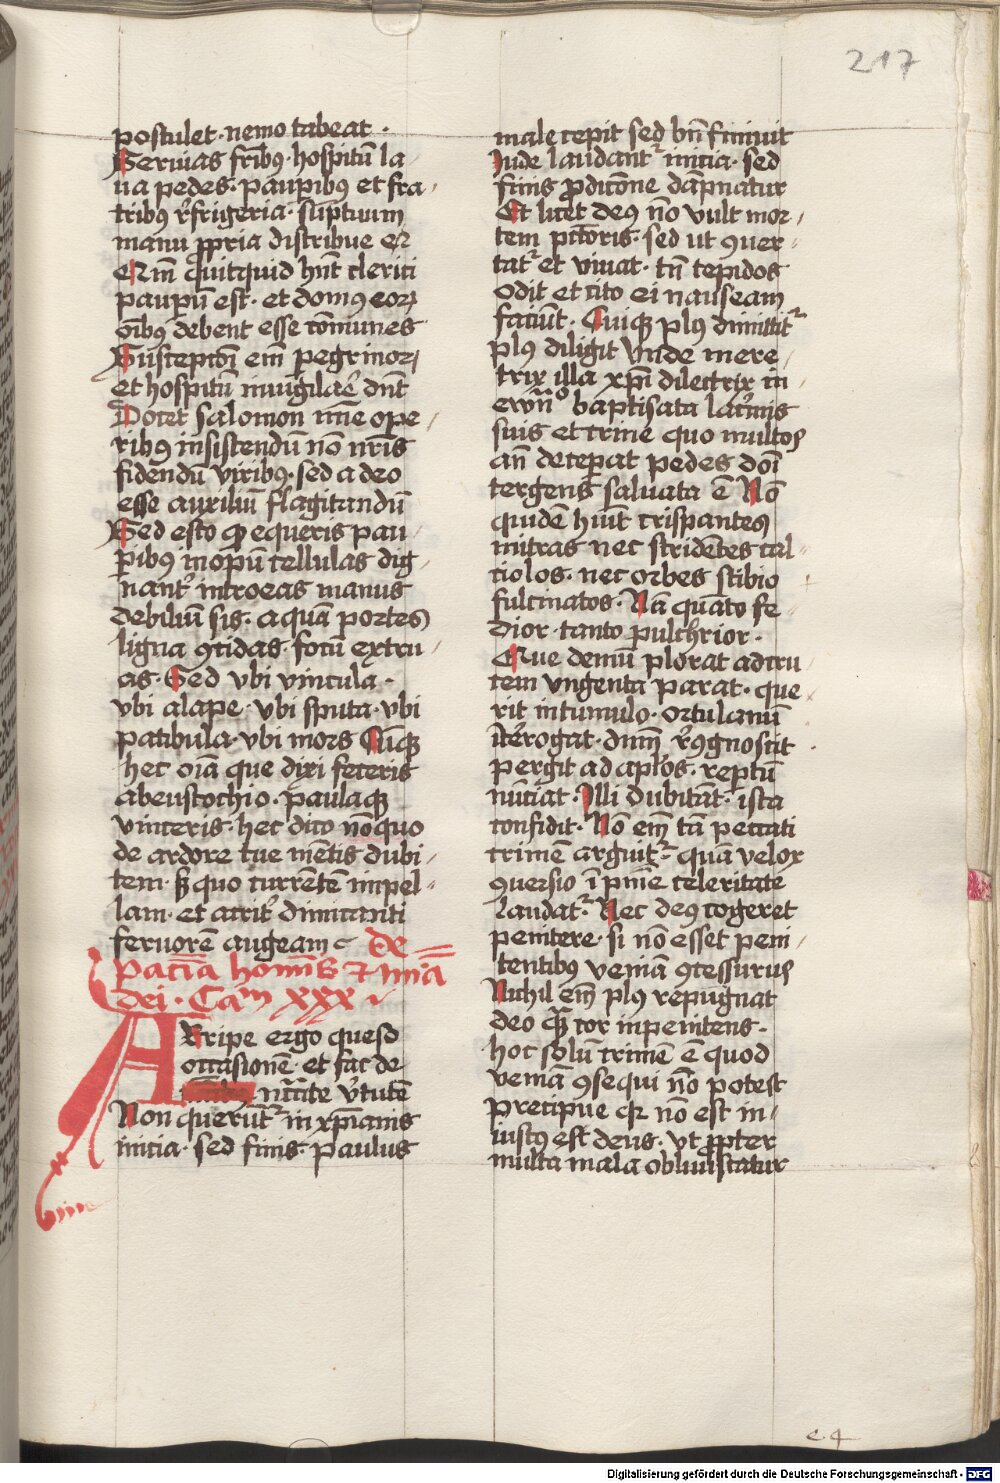 217
postulet · nemo tabeat ·
Seruias frībꝰ · hospitū la
ua pedes · paupibꝰ et fra
tribꝰ rͤfrigeria · sūptuum
manu ꝓpria distribue ec̄
Nim̄ quitquid hn̄t clerici
paupū est · et domꝰ eoꝝ
oībꝰ debent esse cōmunes
Susceptōi em̄ peg̃rinoꝝ
et hospitū inuigilaē dn̄t
Docet salomon nīne ope
ribꝰ insistendū nō nr̄is
fidendū viribꝰ · sed a deo
esse auxiliū flagitandū
Sed esto ꝙ equeris pau
ꝑibꝰ inopū cellulas dig
nantͬ introeas manus
debiliū sis · aquā portes
ligna ꝯcidas · focū extru
as · Sed vbi vincula ·
vbi alape · vbi sputa · vbi
patibula · vbi mors Cūqꝫ
hec oīa que dixi feceris
abeustochio · paulaqꝫ
vinceris · hec dico nō quo
de ardore tue mētis dubi
tem · sꝫ quo currentē impel
lam · et acritͬ dimicanti
feruorē augeam · De
pacīa homīs ⁊ mīa
dei · Cam̄ xxx
ARripe ergo queso
occasionē · et fac de
nc̄cīte vͬtutē
Non querūtͬ in xp̄ianis
inicia · sed finis · paulus
male cepit sed bn̄ finiuit
Jude laudantͬ inicia · sed
finis ꝓdicōne dāpnatur
Et licet deꝰ nō vult mor
tem pctōris · sed ut ꝯuer
tatͬ et viuat · tn̄ tepidos
odit et cito ei nauseam
faciūt · Cuiqꝫ plꝰ dimittitͬ
plꝰ diligit vnde mere
trix illa xp̄i dilectrix in
ewn̄ᵒ baptisata lacͬmis
suis et crine quo multos
an̄ deceperat pedes doī
tergens saluata ē Nō
quidē hūit crispantes
mitras nec stridētes cal
ciolos · nec orbes stibio
fulcinatos · Nā quāto fe
dior · tanto pulchrior ·
Que demū plorat ad cru
cem vngenta parat · que
rit in tumulo · ortulanū
īterogat · dnm̄ rͤꝯgnoscit
pergit ad aplos · reptū
nūciat · Jlli dubitāt · ista
confidit · Nō em̄ tā peccati
crimē arguitͬ · quā velox
ꝯuersio ī pnīe celeritate
laudatͬ · Nec deꝰ cogeret
penitere · si nō esset peni
tentibꝰ veniā ꝯcessurus
Nichil em̄ plꝰ repugnat
deo qꝫ cor inpenitens ·
hoc solū crimē ē quod
veniā ꝯsequi nō potest
Precipue qꝛ nō est in
iustꝰ est deus · vt ꝓpter
multa mala obliuiscatur
e 4
Digitalisierung gefördert durch die Deutsche Forschungsgemeinschaft - DFG